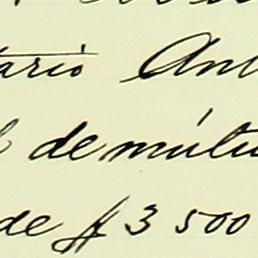 tario Ant
de mútu
de ƒ 3 500